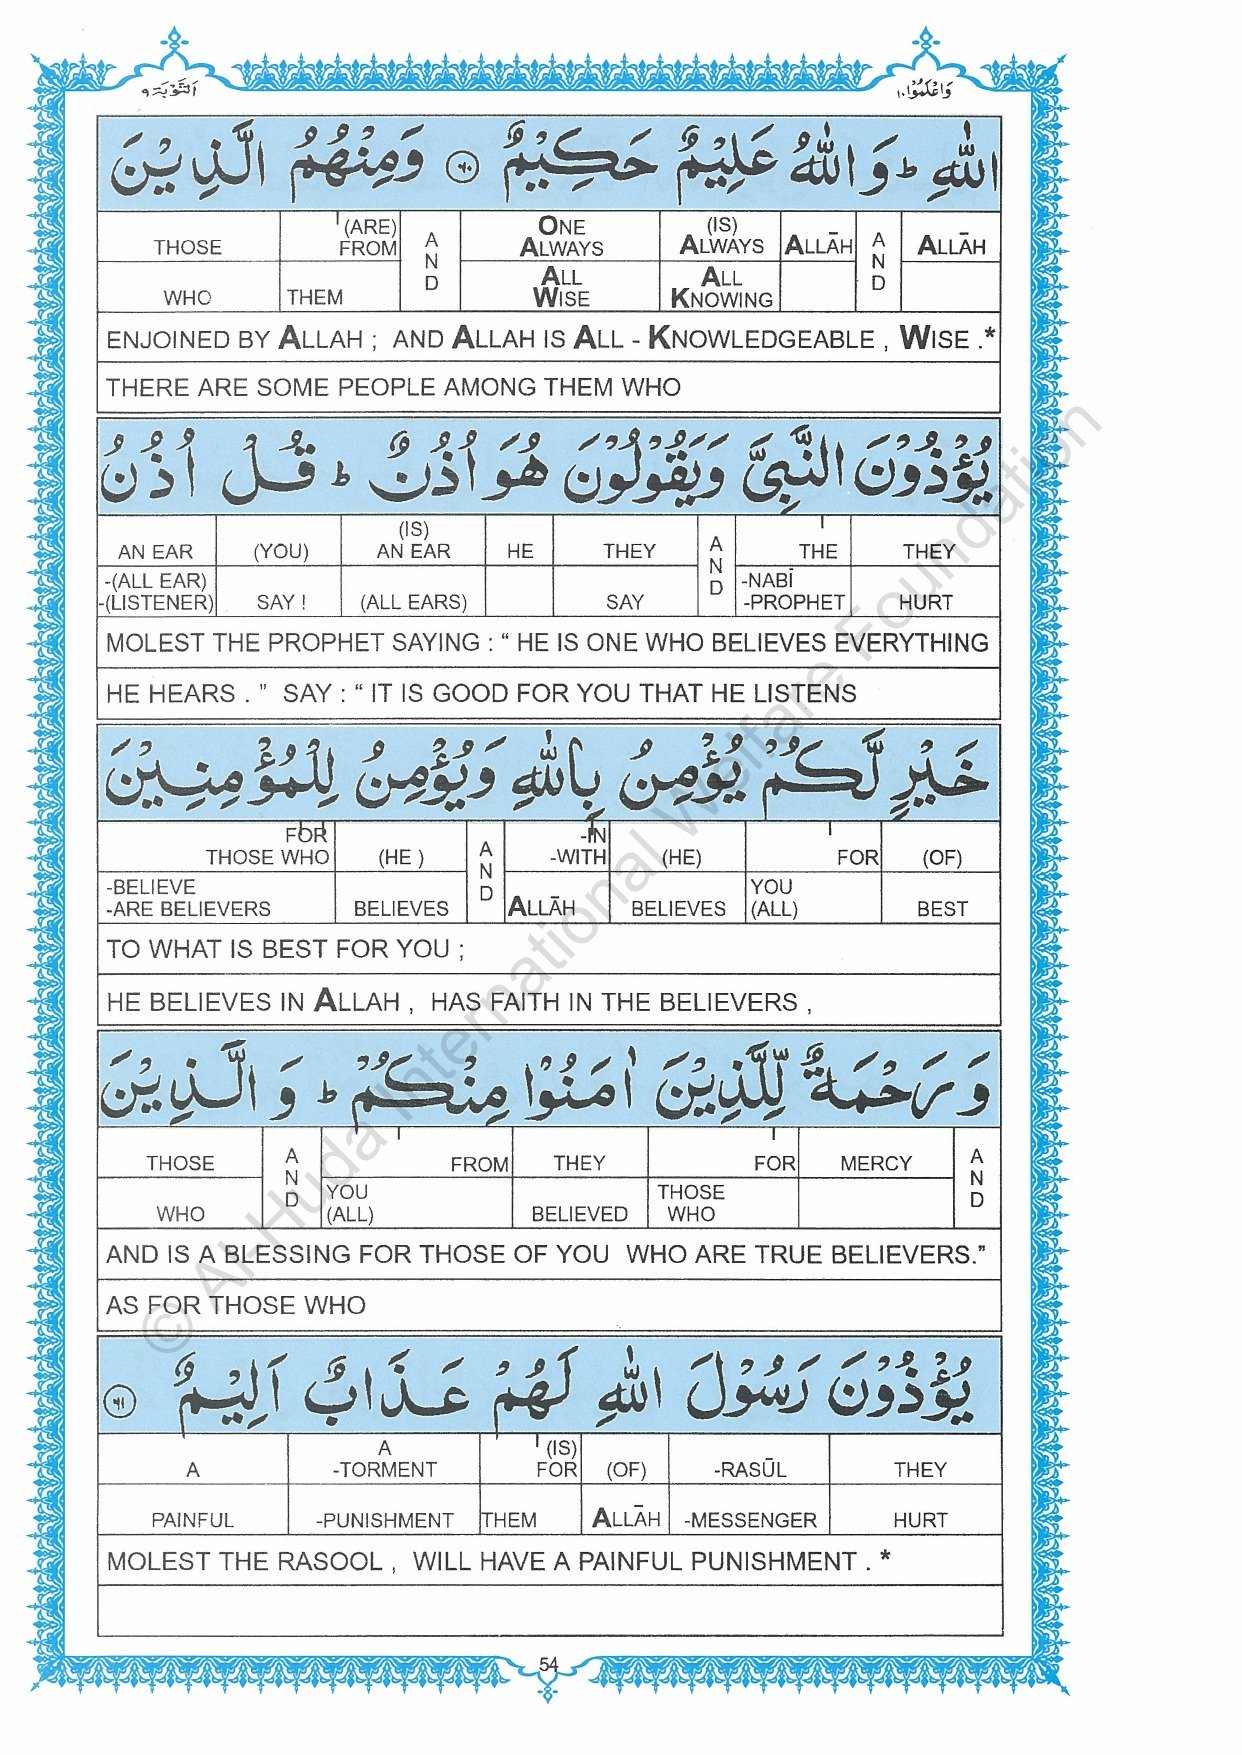 وَاعْلَمُوْٓا ١٠
اَلتَّوْبَة ٩
اللّٰهِ ؕ وَ اللّٰهُ عَلِيْمٌ حَكِيْمٌ ﴿٦٠﴾ وَمِنْهُمُ الَّذِيْنَ
THOSE (ARE) FROM AND ONE ALWAYS (IS) ALWAYS ALLĀH AND ALLĀH
WHO THEM ALL WISE ALL KNOWING
ENJOINED BY ALLAH ; AND ALLAH IS ALL - KNOWLEDGEABLE , WISE .*
THERE ARE SOME PEOPLE AMONG THEM WHO
يُؤْذُوْنَ النَّبِىَّ وَيَقُوْلُوْنَ هُوَ اُذُنٌ ؕ قُلْ اُذُنُ
AN EAR (YOU) (IS) AN EAR HE THEY AND THE THEY
-(ALL EAR) -(LISTENER) SAY ! (ALL EARS) SAY -NABĪ -PROPHET HURT
MOLEST THE PROPHET SAYING : “ HE IS ONE WHO BELIEVES EVERYTHING
HE HEARS . ” SAY : “ IT IS GOOD FOR YOU THAT HE LISTENS
خَيْرٍ لَّكُمْ يُؤْمِنُ بِاللّٰهِ وَيُؤْمِنُ لِلْمُؤْمِنِيْنَ
FOR THOSE WHO (HE ) AND -IN -WITH (HE) FOR (OF)
-BELIEVE -ARE BELIEVERS BELIEVES ALLĀH BELIEVES YOU (ALL) BEST
TO WHAT IS BEST FOR YOU ;
HE BELIEVES IN ALLAH , HAS FAITH IN THE BELIEVERS ,
وَ رَحْمَةٌ لِّلَّذِيْنَ اٰمَنُوْا مِنْكُمْ ؕ وَ الَّذِيْنَ
THOSE AND FROM THEY FOR MERCY AND
WHO YOU (ALL) BELIEVED THOSE WHO
AND IS A BLESSING FOR THOSE OF YOU WHO ARE TRUE BELIEVERS.”
AS FOR THOSE WHO
يُؤْذُوْنَ رَسُوْلَ اللّٰهِ لَهُمْ عَذَابٌ اَلِيْمٌ ﴿٦١﴾
A A -TORMENT (IS) FOR (OF) -RASŪL THEY
PAINFUL -PUNISHMENT THEM ALLĀH -MESSENGER HURT
MOLEST THE RASOOL , WILL HAVE A PAINFUL PUNISHMENT . *
54
© Al-Huda International Welfare Foundation